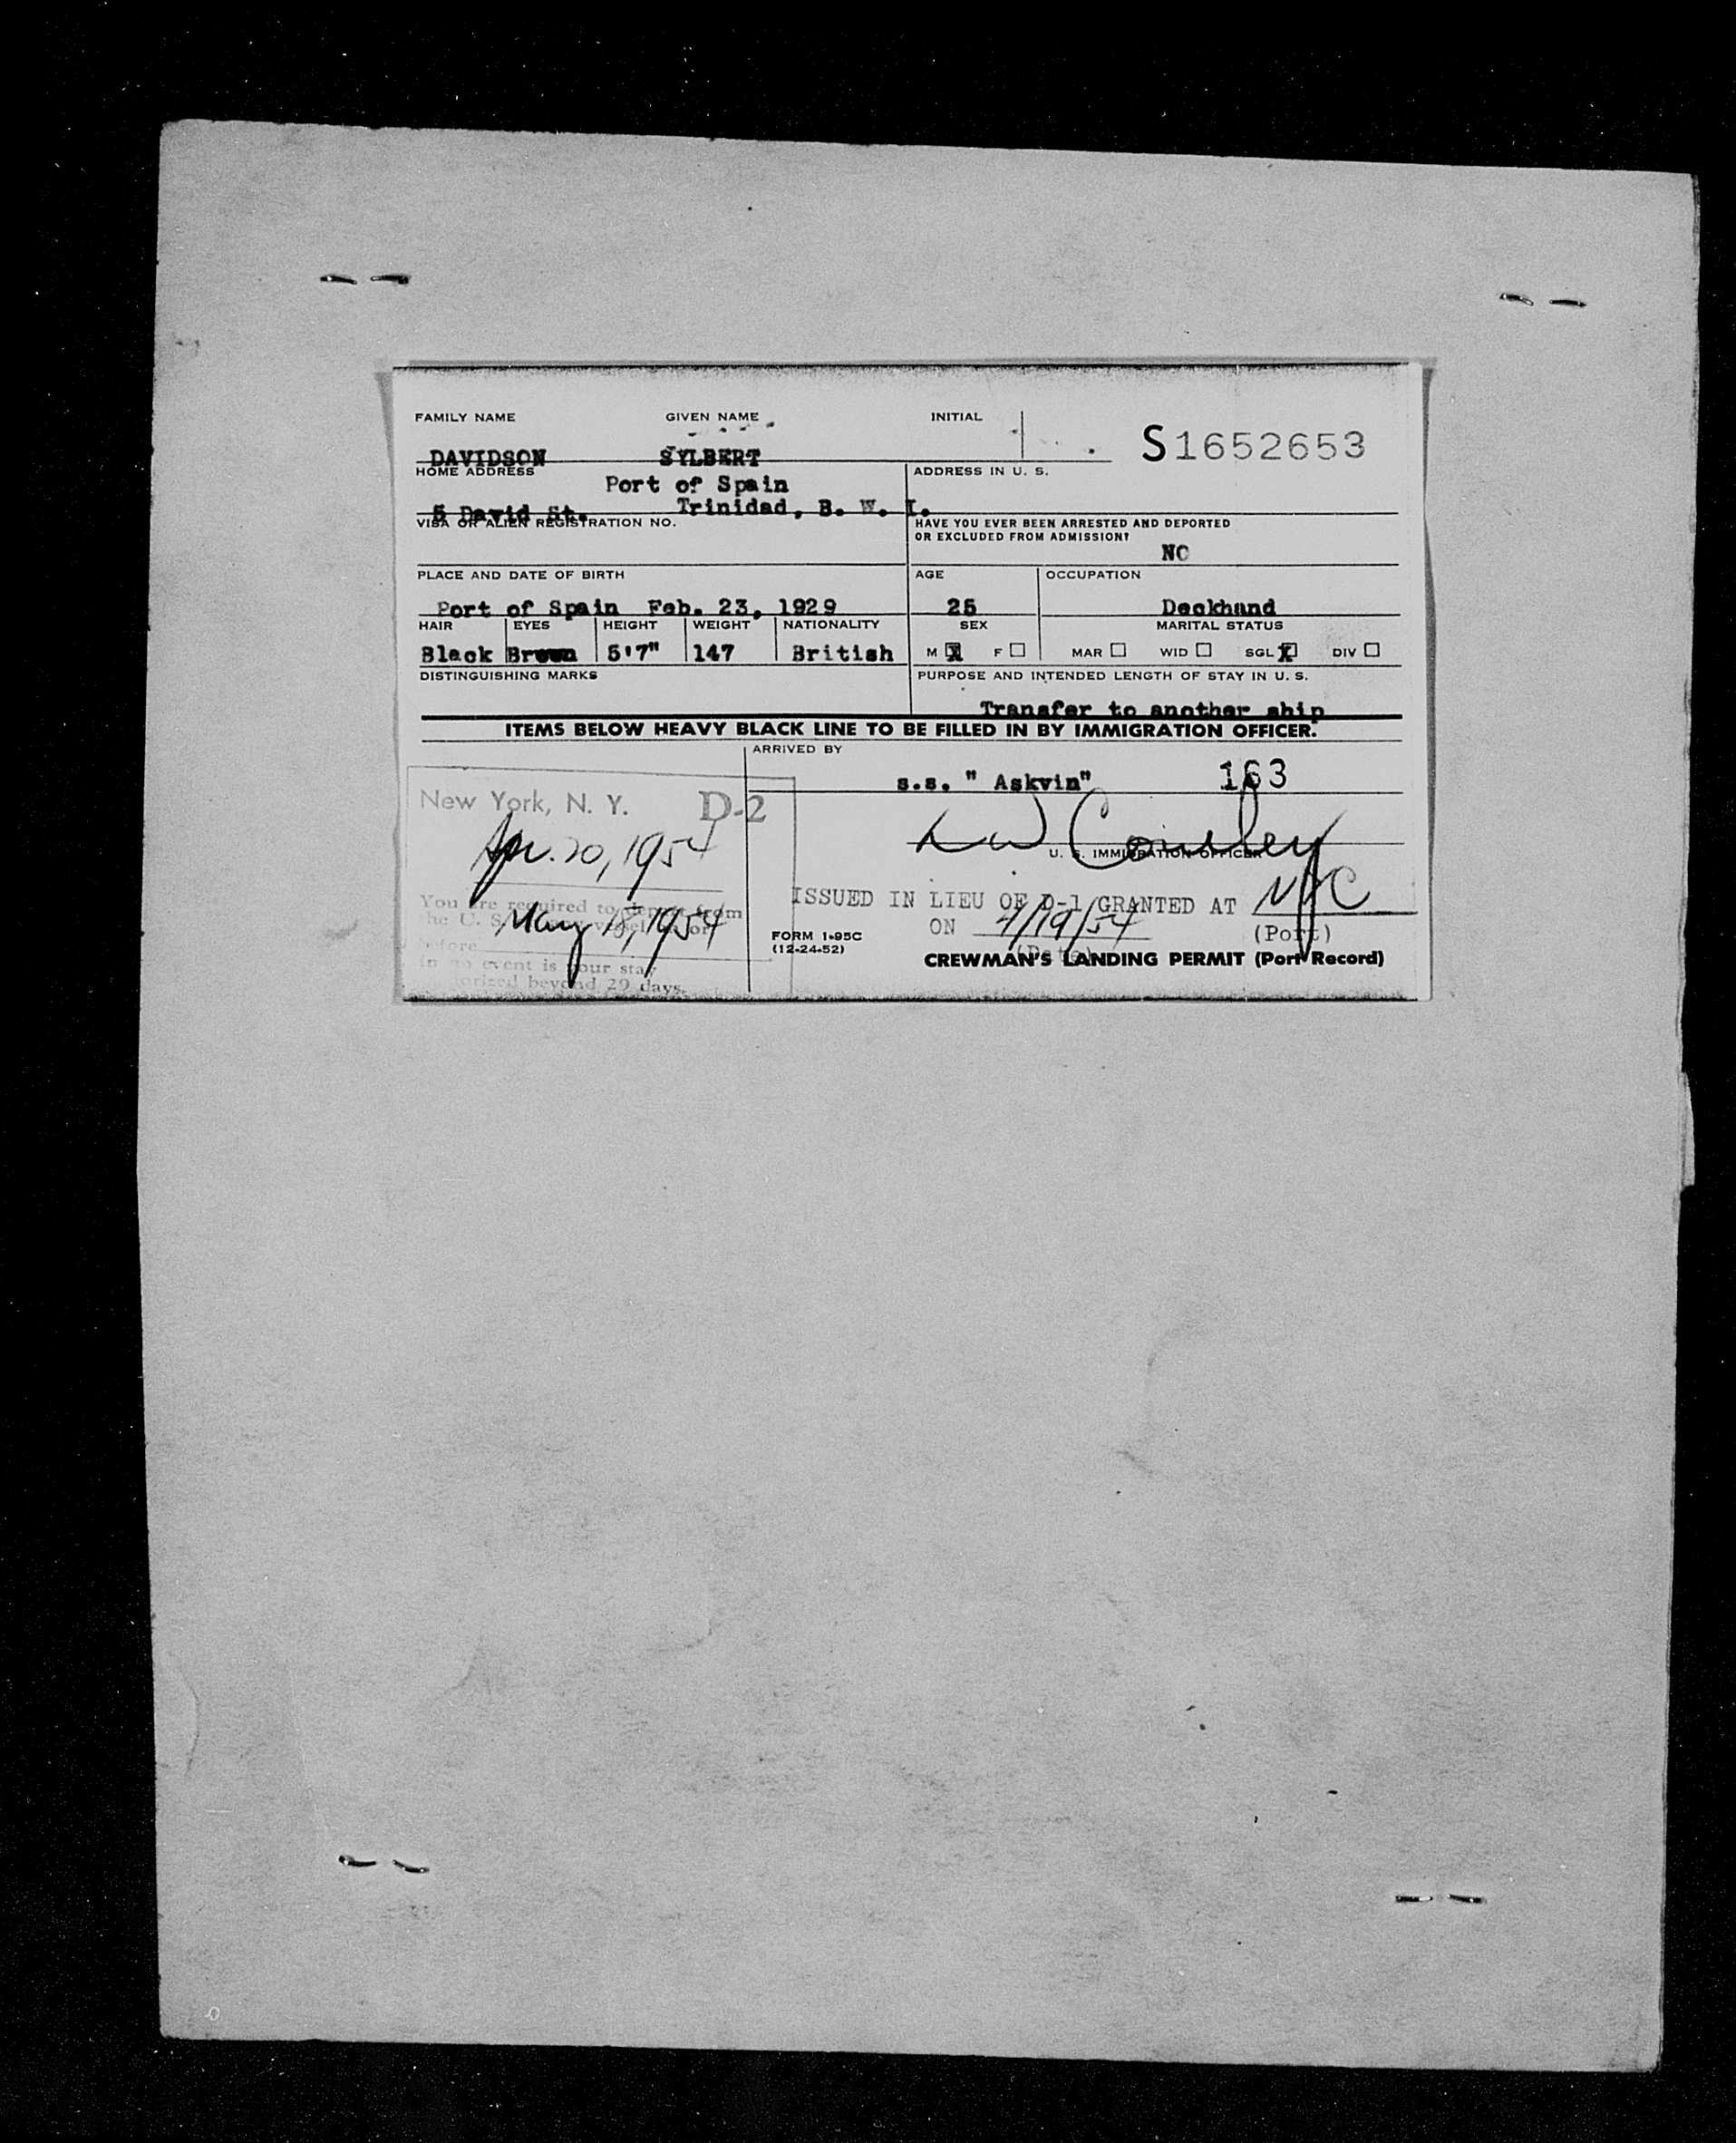 FAMILY NAME GIVEN NAME INITIAL
S1652653
DAVIDSON SYLBERT
HOME ADDRESS ADDRESS IN U. S.
Port of Spain
5 David St. Trinidad, B. W. I.
VISA OR ALIEN REGISTRATION NO. HAVE YOU EVER BEEN ARRESTED AND DEPORTED
OR EXCLUDED FROM ADMISSION?
NO
PLACE AND DATE OF BIRTH AGE OCCUPATION
Port of Spain Feb. 23, 1929 25 Deckhand
HAIR EYES HEIGHT WEIGHT NATIONALITY SEX MARITAL STATUS
Black Brown 5'7" 147 British M X F MAR WID SGL X DIV
DISTINGUISHING MARKS PURPOSE AND INTENDED LENGTH OF STAY IN U. S.
Transfer to another ship
ITEMS BELOW HEAVY BLACK LINE TO BE FILLED IN BY IMMIGRATION OFFICER.
ARRIVED BY
s.s. " Askvin" 163
New York, N. Y. D-2
Apr. 20, 1954
U. S. IMMIGRATION OFFICER
ISSUED IN LIEU OF D-1 GRANTED AT NYC
You are required to depart from
the U. S. vessel or
May 18, 1954
ON 4/19/54 (Port)
(Date)
before
FORM I-95C
(12-24-52)
CREWMAN'S LANDING PERMIT (Port Record)
in no event is your stay
beyond 29 days.